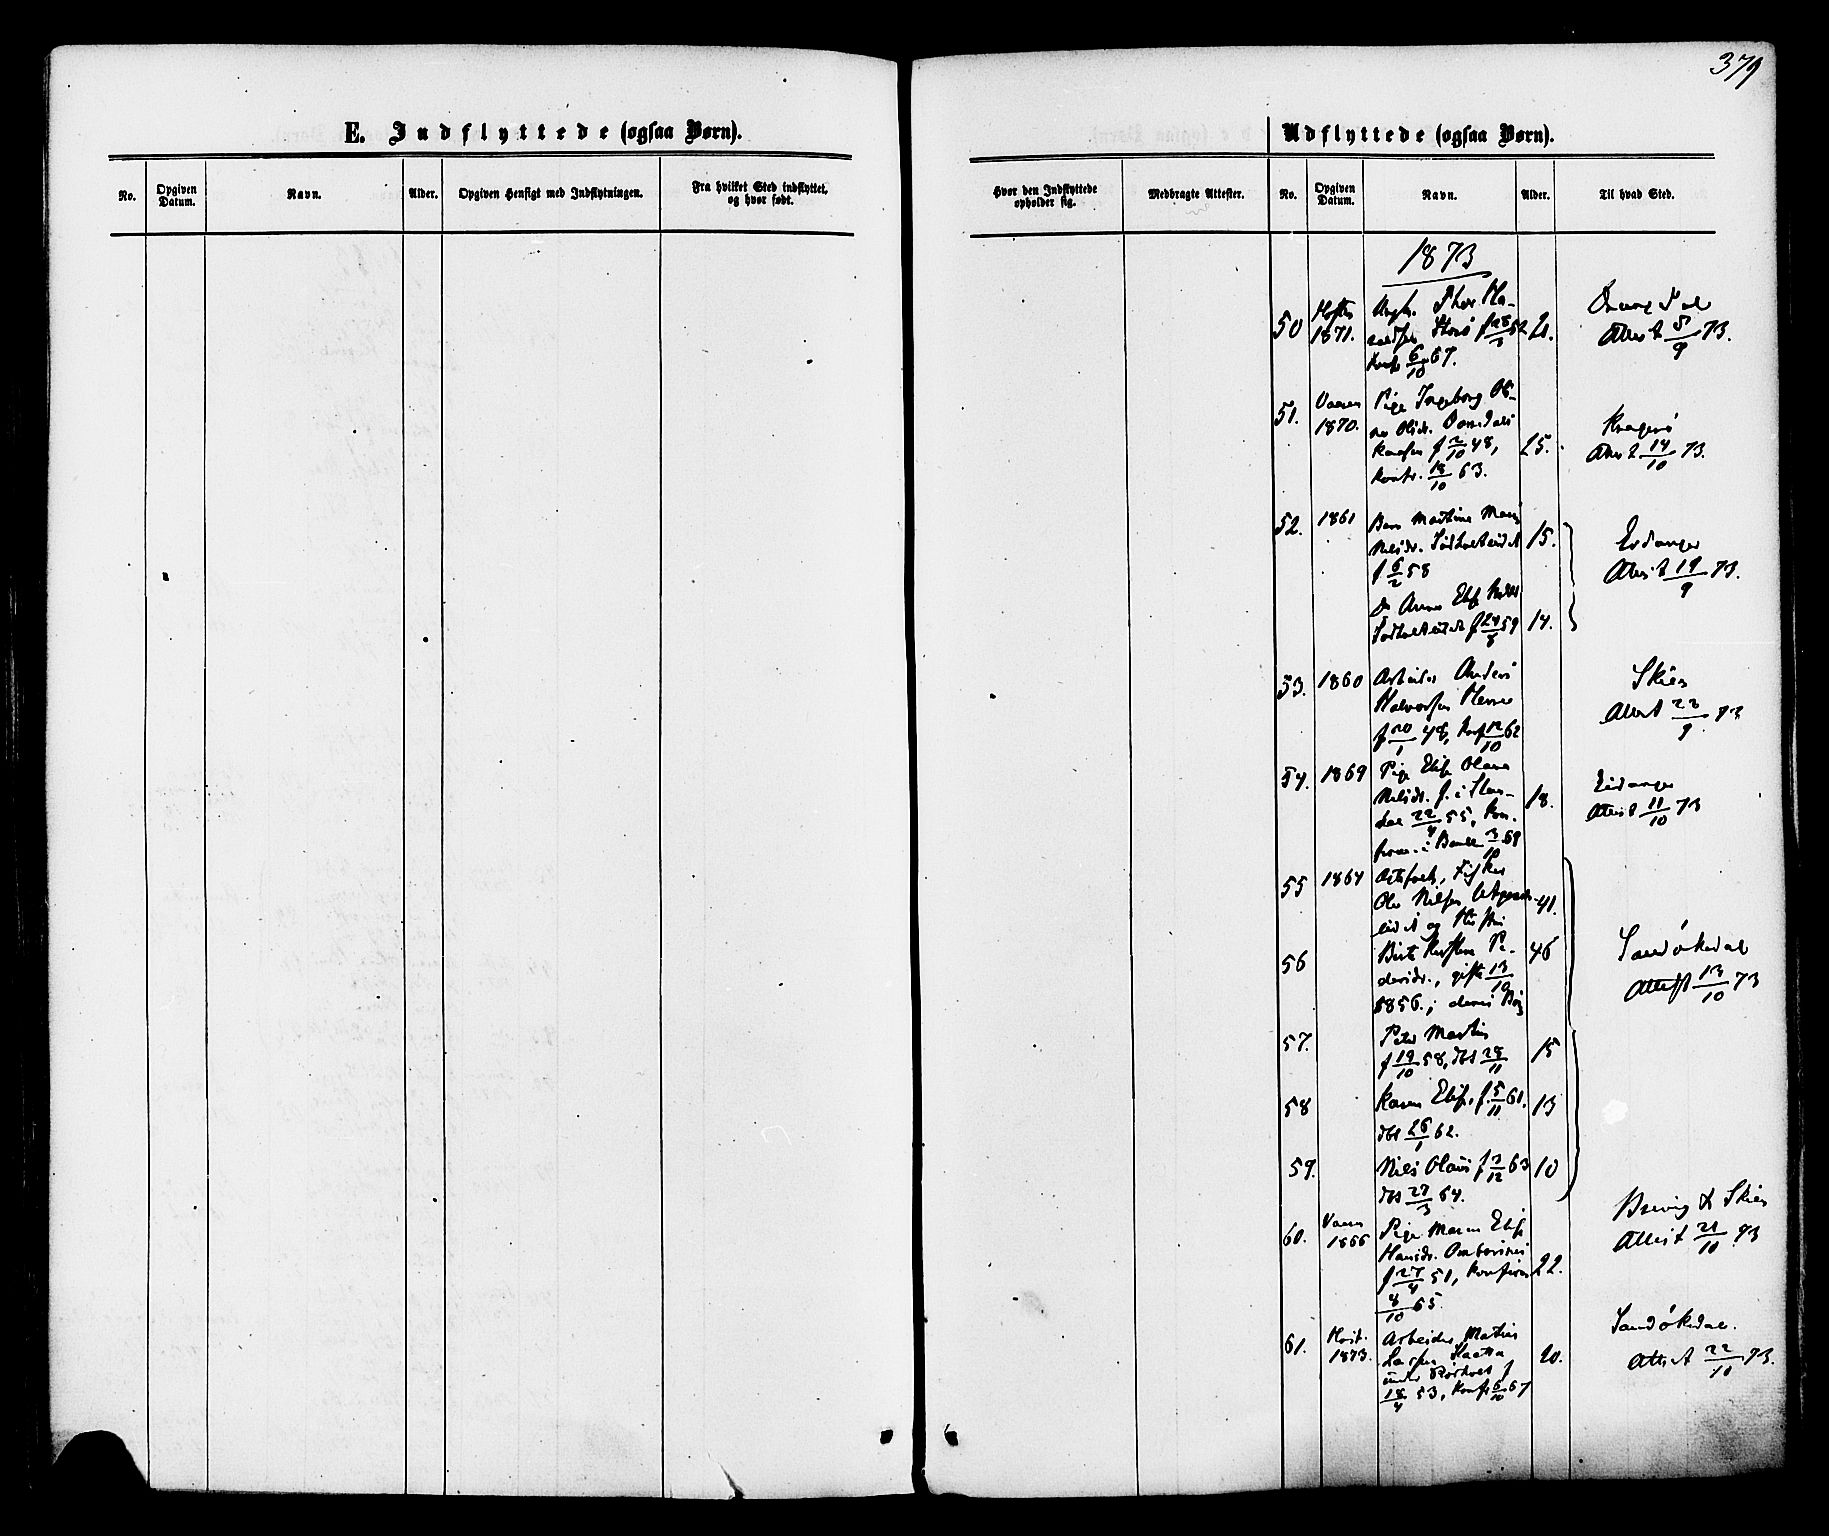 379
E. Indflyttede (ogsaa Børn).
No.
Opgiven Datum.
Navn.
Alder.
Opgiven Hensigt med Indflytningen.
Fra hvilket Sted indflyttet, og hvor født.
Hvor den Indflyttede opholder sig.
Medbragte Attester.
Udflyttede (ogsaa Børn).
No.
Opgiven Datum.
Navn.
Alder.
Til hvad Sted.
1873
50
1871.
Konf 6/10 67.
21.
Attest 5/9 73.
51.
Vaaren
1870.
Pige Ingeborg
f 2/10 48,
Konfr. 18/10 63.
25.
Kragerø
Attest 14/10 73.
52.
1861
Barn Martine
Nilsdr.
f 6/2 58
15.
Eidanger
Attest 19/9 73.
do Anne Elise
59
14.
53.
1860
Arbeider Anders
Halvorsen Herre
f 20/1 48, Konf 12/10 62
Skien
Attest 22/9 73
54.
1869
Pige Elise Olava
Nilsdr. f. i
22/4 55, Kon-
i Bamle 3/10 69
18.
Eidanger
Attest 11/10 73
55
1864
Fisker
Ole Nilsen
og Hustru
41.
56
Birte Kirstine Pe-
dersdr., gifte 13/10
1856.; deres
46
Sandøkedal
Attest 13/10 73
57.
Peter Martin
f 19/10 58, dbt 28/11
15
58
Karen Elise, f. 5/11 61.
dbt 26/1 62.
13
59.
Nils Olaus f 3/12 63
dbt 27/3 64.
10
60.
Vaaren
1866
Pige Maren Elise
Hansdr.
f 27/4 51, Konfirm
8/10 65.
22.
Brevig & Skien
Attest 21/10 73
61.
Høst.
1873.
Arbeider Mathias
Larsen
under f
18/4 53, Konf 6/10 67
20.
Sandøkedal.
Attest 22/10 73.